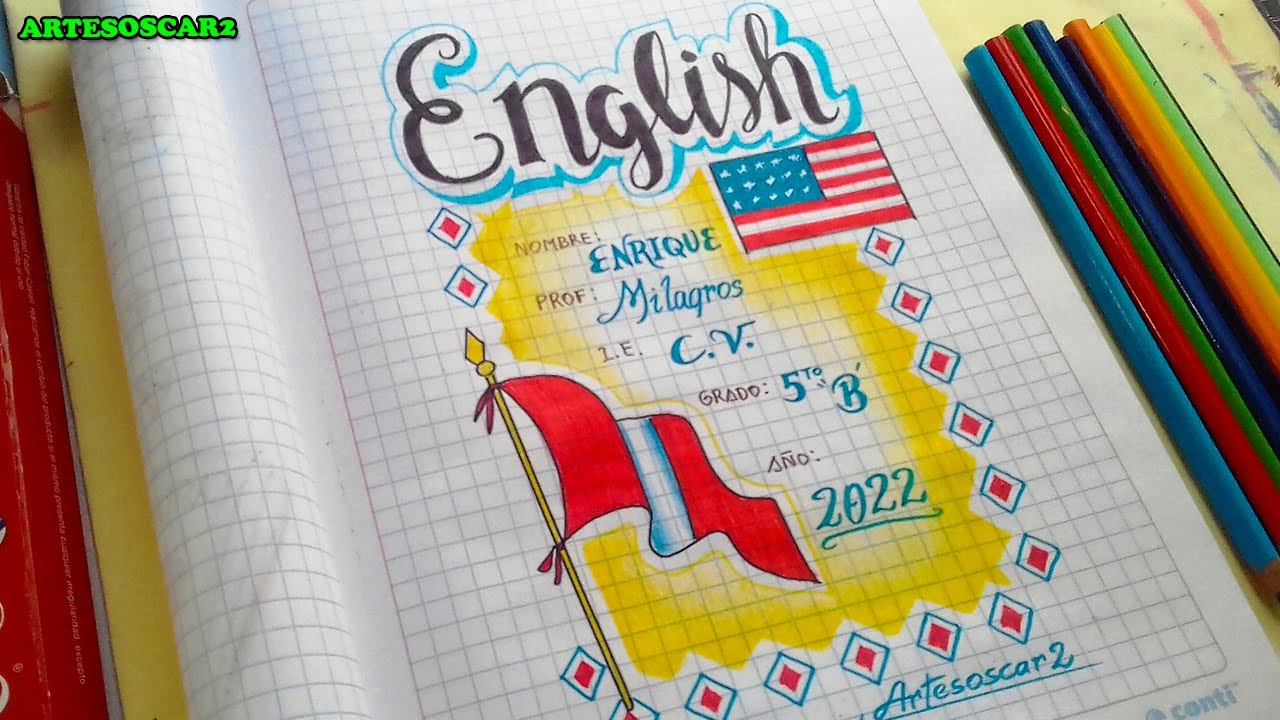 ARTESOSCAR2
English
NOMBRE: ENRIQUE
PROF: Milagros
I.E. C.V.
GRADO: 5TO "B"
AÑO: 2022
Artesoscar2
conti